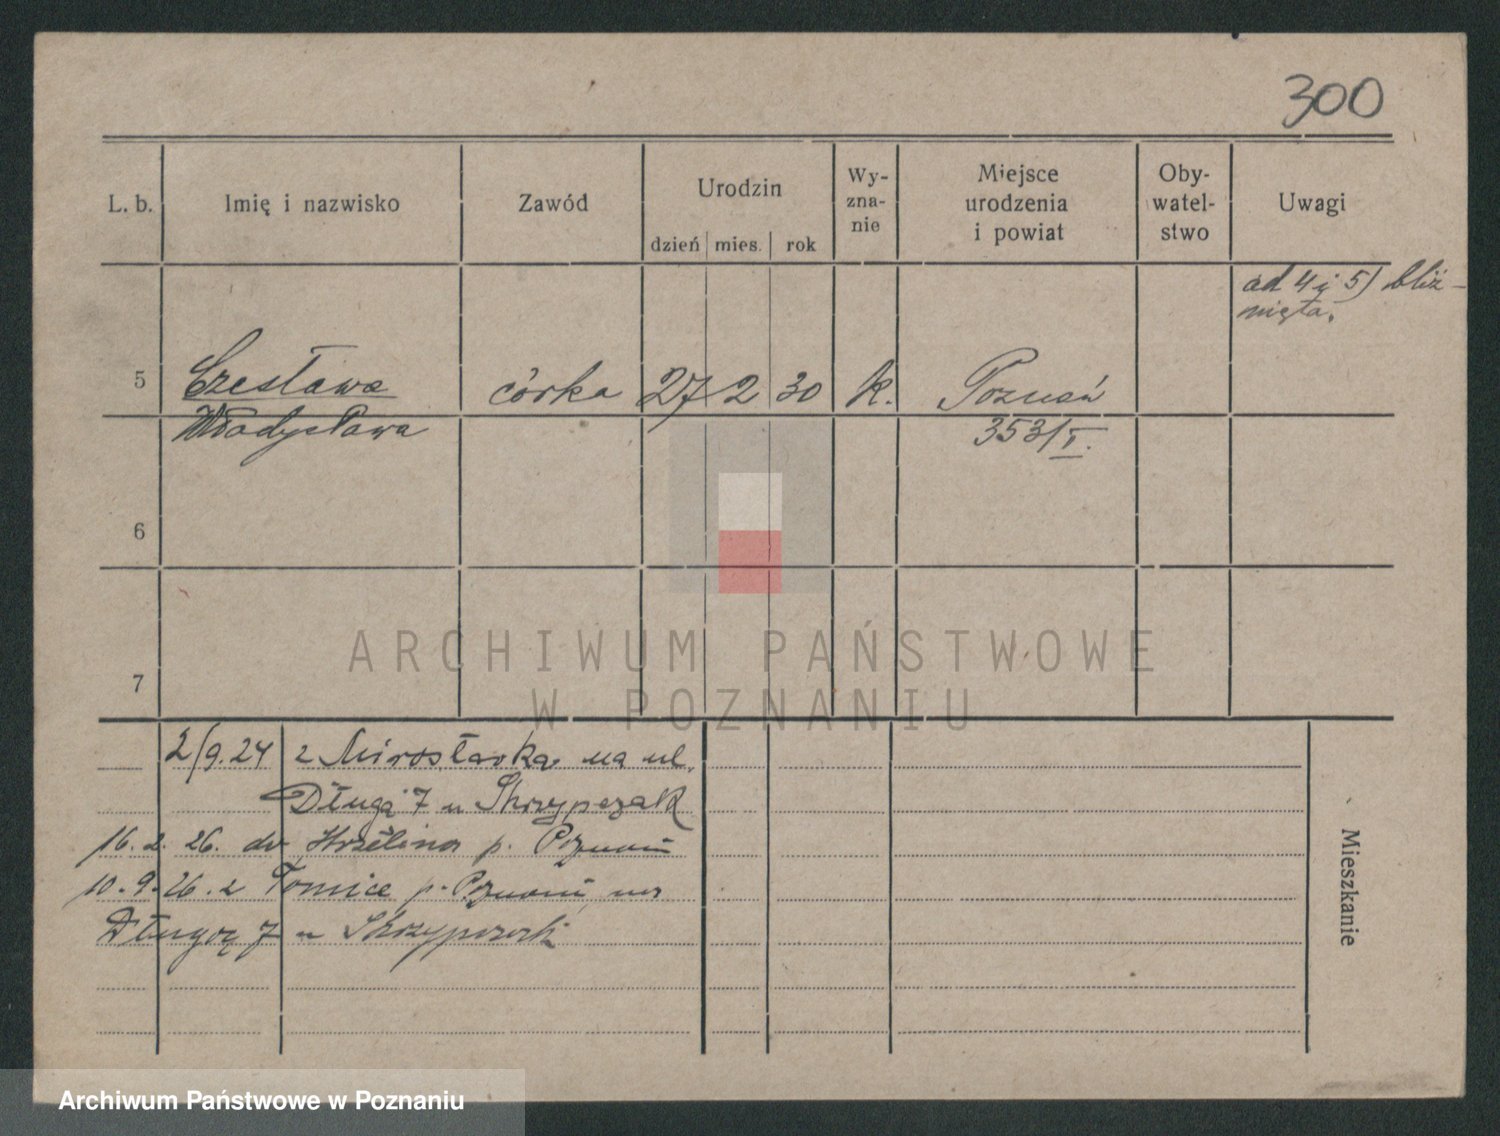 300
L. b. Imię i nazwisko Zawód Urodzin Wy-zna-nie Miejsce urodzenia i powiat Oby-watel-stwo Uwagi
dzień mies. rok
ad 4 i 5) bliź-
nięta.
5 Czesława córka 27 2 30 k. Poznań
Władysława 353/I.
6
7
ARCHIWUM PAŃSTWOWE
W POZNANIU
2/9.24 z Mirosławką na ul.
Długą 7 u Skrzypczak
16.2.26. do p. Poznań
10.9.26. z Tomice p. Poznań na
Długą 7 u Skrzypczak
Mieszkanie
Archiwum Państwowe w Poznaniu